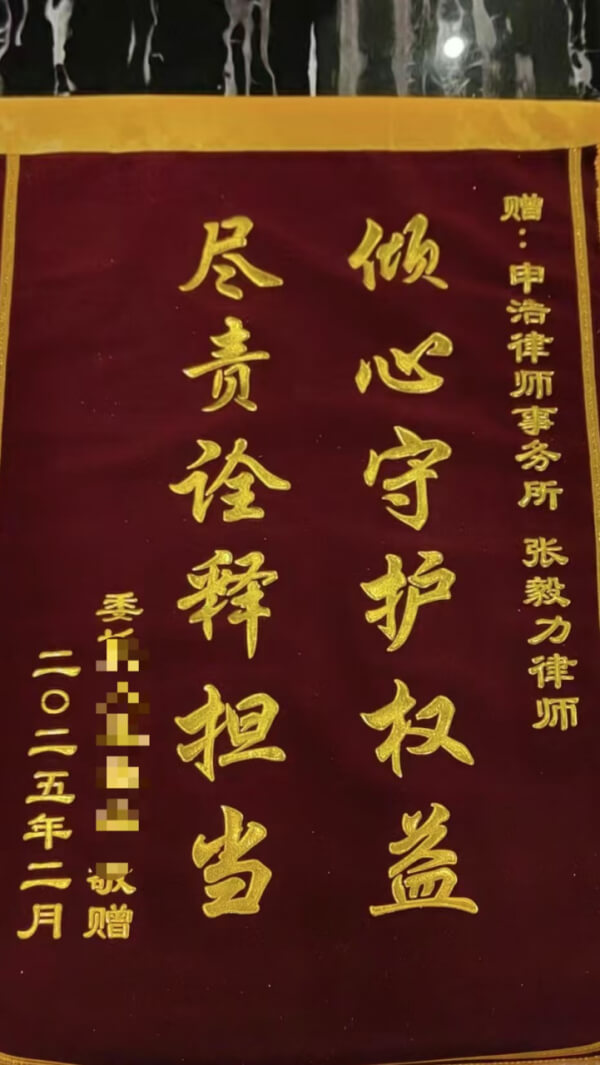 赠：申浩律师事务所 张毅力律师
倾心守护权益
尽责诠释担当
委 敬赠
二〇二五年二月